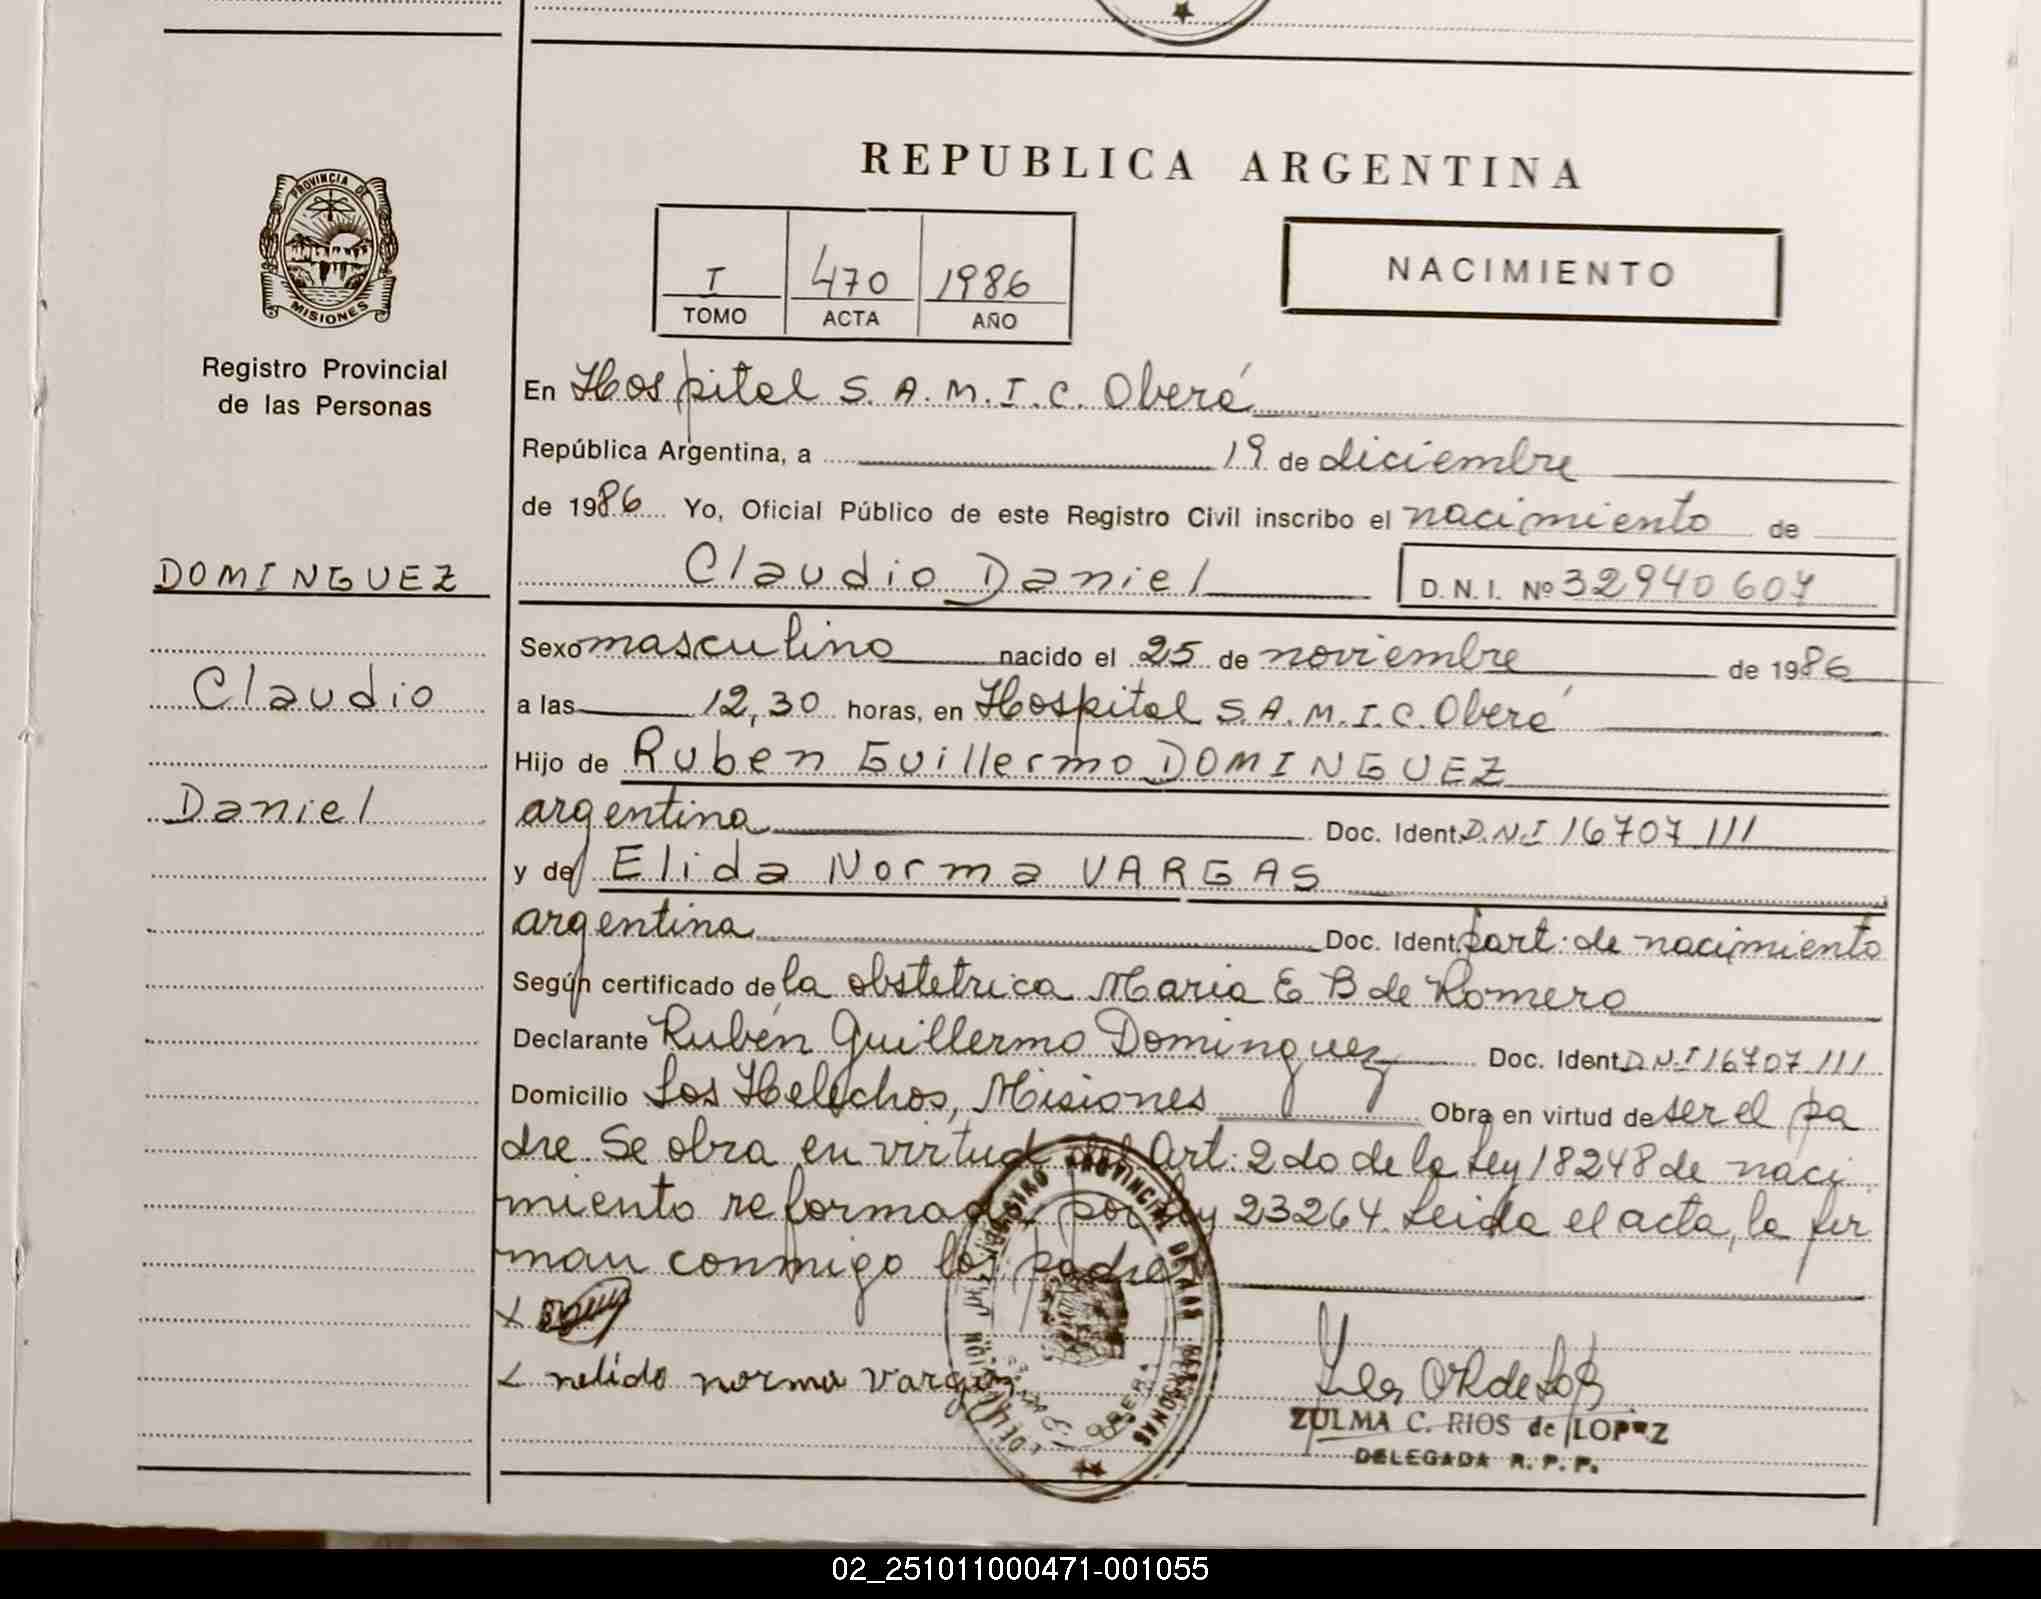 REPUBLICA ARGENTINA
PROVINCIA DE
MISIONES
Registro Provincial
de las Personas
I 470 1986
TOMO ACTA AÑO
NACIMIENTO
DOMINGUEZ
Claudio
Daniel
En Hospital S.A.M.I.C. Oberá
República Argentina, a 19 de diciembre
de 1986 Yo, Oficial Público de este Registro Civil inscribo el nacimiento de
Claudio Daniel D.N.I. Nº 32940607
Sexo masculino nacido el 25 de noviembre de 1986
a las 12,30 horas, en Hospital S.A.M.I.C. Oberá
Hijo de Ruben Guillermo DOMINGUEZ
argentina Doc. Ident. D.N.I 16707111
y de Elida Norma VARGAS
argentina Doc. Ident. part: de nacimiento
Según certificado de la obstetrica Maria E B de Romero
Declarante Rubén Guillermo Dominguez Doc. Ident. D.N.I 16707111
Domicilio Los Helechos, Misiones Obra en virtud de ser el pa
dre. Se obra en virtud del Art: 2do de la Ley 18248 de naci
miento reformada por ley 23264. Leida el acta, la fir
man conmigo los padres
x
x nelida norma vargas
REGISTRO PROVINCIAL DE LAS PERSONAS
OBERA
ZULMA C. RIOS de LOPEZ
DELEGADA R. P. P.
02_251011000471-001055